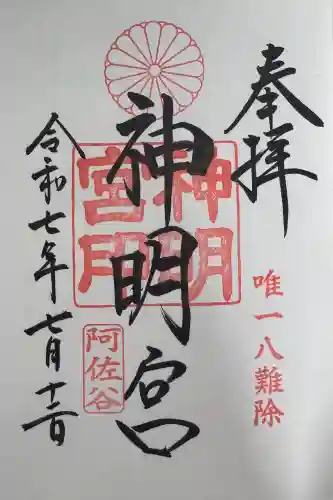 奉拝
唯一八難除
神明宮
神明宮印
阿佐谷
令和七年七月十二日